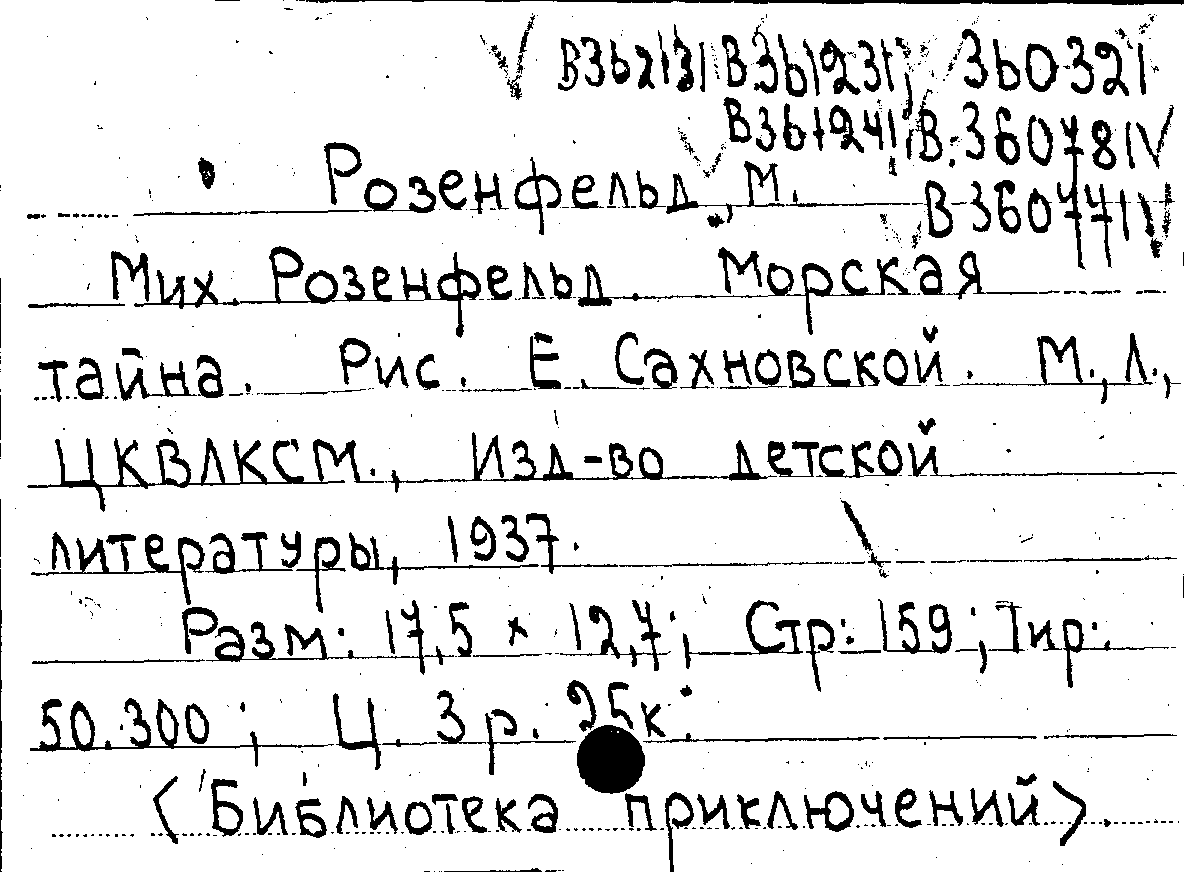 В362131 В361231, 360321
В361241, В.360781
Розенфельд, М. В360771
Мих. Розенфельд. Морская
тайна. Рис. Е. Сахновской. М., Л.,
ЦКВЛКСМ., Изд-во детской
литературы, 1937.
Разм: 17,5 × 12,7; Стр: 159; Тир:
50.300; Ц. 3 р. 25к.
<Библиотека приключений>.